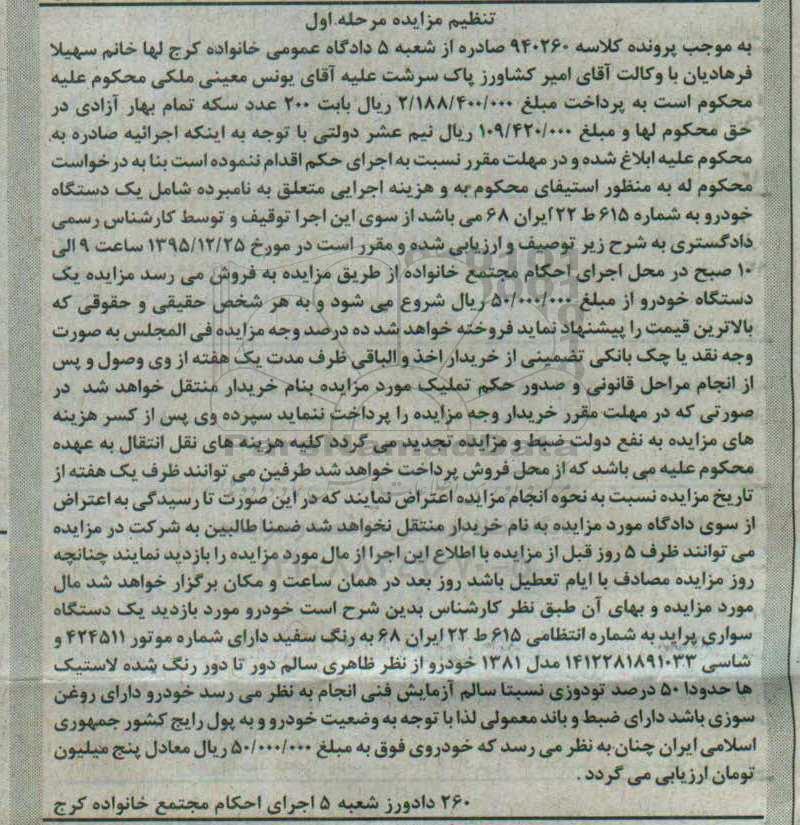 تنظیم مزایده مرحله اول
به موجب پرونده کلاسه ۹۴۰۲۶۰ صادره از شعبه ۵ دادگاه عمومی خانواده کرج لها خانم سهیلا
فرهادیان با وکالت آقای امیر کشاورز پاک سرشت علیه آقای یونس معینی ملکی محکوم علیه
محکوم است به پرداخت مبلغ ۲/۱۸۸/۴۰۰/۰۰۰ ریال بابت ۲۰۰ عدد سکه تمام بهار آزادی در
حق محکوم لها و مبلغ ۱۰۹/۴۲۰/۰۰۰ ریال نیم عشر دولتی با توجه به اینکه اجرائیه صادره به
محکوم علیه ابلاغ شده و در مهلت مقرر نسبت به اجرای حکم اقدام ننموده است بنا به درخواست
محکوم له به منظور استیفای محکوم به و هزینه اجرایی متعلق به نامبرده شامل یک دستگاه
خودرو به شماره ۶۱۵ ط ۲۲ ایران ۶۸ می باشد از سوی این اجرا توقیف و توسط کارشناس رسمی
دادگستری به شرح زیر توصیف و ارزیابی شده و مقرر است در مورخ ۱۳۹۵/۱۲/۲۵ ساعت ۹ الی
۱۰ صبح در محل اجرای احکام مجتمع خانواده از طریق مزایده به فروش می رسد مزایده یک
دستگاه خودرو از مبلغ ۵۰/۰۰۰/۰۰۰ ریال شروع می شود و به هر شخص حقیقی و حقوقی که
بالاترین قیمت را پیشنهاد نماید فروخته خواهد شد ده درصد وجه مزایده فی المجلس به صورت
وجه نقد یا چک بانکی تضمینی از خریدار اخذ و الباقی ظرف مدت یک هفته از وی وصول و پس
از انجام مراحل قانونی و صدور حکم تملیک مورد مزایده بنام خریدار منتقل خواهد شد در
صورتی که در مهلت مقرر خریدار وجه مزایده را پرداخت ننماید سپرده وی پس از کسر هزینه
های مزایده به نفع دولت ضبط و مزایده تجدید می گردد کلیه هزینه های نقل انتقال به عهده
محکوم علیه می باشد که از محل فروش پرداخت خواهد شد طرفین می توانند ظرف یک هفته از
تاریخ مزایده نسبت به نحوه انجام مزایده اعتراض نمایند که در این صورت تا رسیدگی به اعتراض
از سوی دادگاه مورد مزایده به نام خریدار منتقل نخواهد شد ضمنا طالبین به شرکت در مزایده
می توانند ظرف ۵ روز قبل از مزایده با اطلاع این اجرا از مال مورد مزایده را بازدید نمایند چنانچه
روز مزایده مصادف با ایام تعطیل باشد روز بعد در همان ساعت و مکان برگزار خواهد شد مال
مورد مزایده و بهای آن طبق نظر کارشناس بدین شرح است خودرو مورد بازدید یک دستگاه
سواری پراید به شماره انتظامی ۶۱۵ ط ۲۲ ایران ۶۸ به رنگ سفید دارای شماره موتور ۴۲۴۵۱۱ و
شاسی ۱۴۱۲۲۸۱۸۹۱۰۳۳ مدل ۱۳۸۱ خودرو از نظر ظاهری سالم دور تا دور رنگ شده لاستیک
ها حدودا ۵۰ درصد تودوزی نسبتا سالم آزمایش فنی انجام به نظر می رسد خودرو دارای روغن
سوزی باشد دارای ضبط و باند معمولی لذا با توجه به وضعیت خودرو و به پول رایج کشور جمهوری
اسلامی ایران چنان به نظر می رسد که خودروی فوق به مبلغ ۵۰/۰۰۰/۰۰۰ ریال معادل پنج میلیون
تومان ارزیابی می گردد .
۲۶۰ دادورز شعبه ۵ اجرای احکام مجتمع خانواده کرج